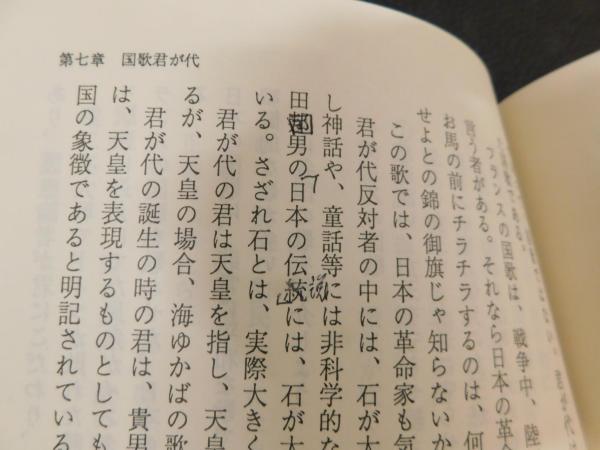 第七章　国歌君が代
フランスの国歌は、戦争中、陸
言う者がある。それなら日本の革命
お馬の前にチラチラするのは、何
せよとの錦の御旗じゃ知らないか
この歌では、日本の革命家も気
君が代反対者の中には、石が大
し神話や、童話等には非科学的な
田男の日本の伝統には、石が大
いる。さざれ石とは、実際大きく
君が代の君は天皇を指し、天皇
るが、天皇の場合、海ゆかばの歌
君が代の誕生の時の君は、貴男
は、天皇を表現するものとしても
国の象徴であると明記されている